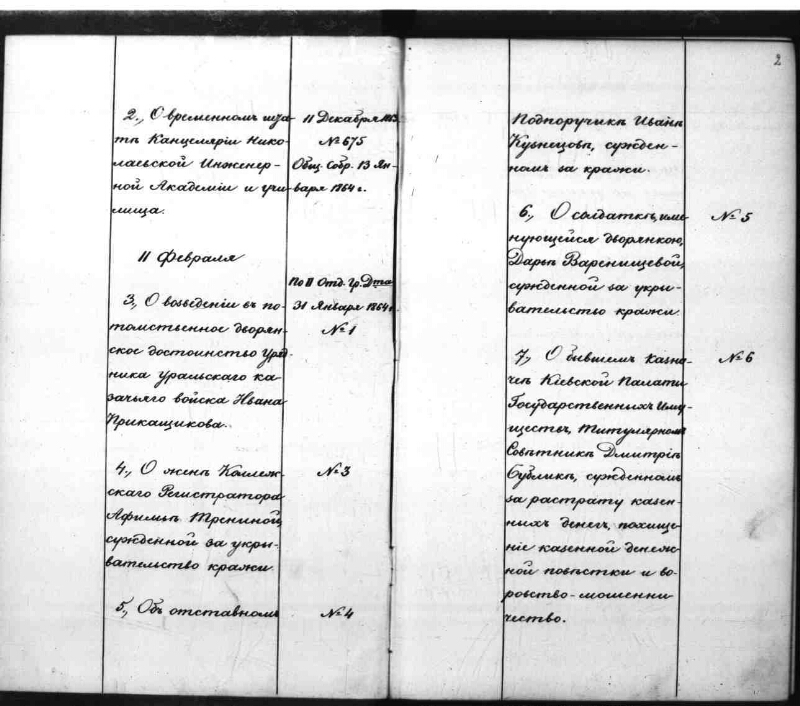 2
2., О временномъ шта-
тѣ Канцеляріи Нико-
лаевской Инженер-
ной Академіи и учи-
лища.
11 Декабря 1863
№ 675
Общ. Собр. 13 Ян-
варя 1864 г.
11 Февраля
3., О возведеніи въ по-
томственное дворян-
ское достоинство Уряд-
ника Уральскаго ка-
зачьяго войска Ивана
Прикащикова.
По II Отд. Гр. Д-та
31 Января 1864 г.
№ 1
4., О женѣ Коллеж-
скаго Регистратора
Афимьѣ Трениной,
сужденной за укры-
вательство кражи
№ 3
5., Объ отставномъ
№ 4
Подпоручикѣ Иванѣ
Кузнецовѣ, сужден-
номъ за кражи.
6., О солдаткѣ, име-
нующейся дворянкою,
Дарьѣ Варенищевой,
сужденной за укры-
вательство кражи
№ 5
7., О бывшемъ казна-
чеѣ Кіевской Палаты
Государственныхъ Иму-
ществъ, Титулярномъ
Совѣтникѣ Дмитріѣ
Бубликѣ, сужденномъ
за растрату казен-
ныхъ денегъ, похище-
ніе казенной денеж-
ной повѣстки и во-
ровство-мошенни
чество.
№ 6